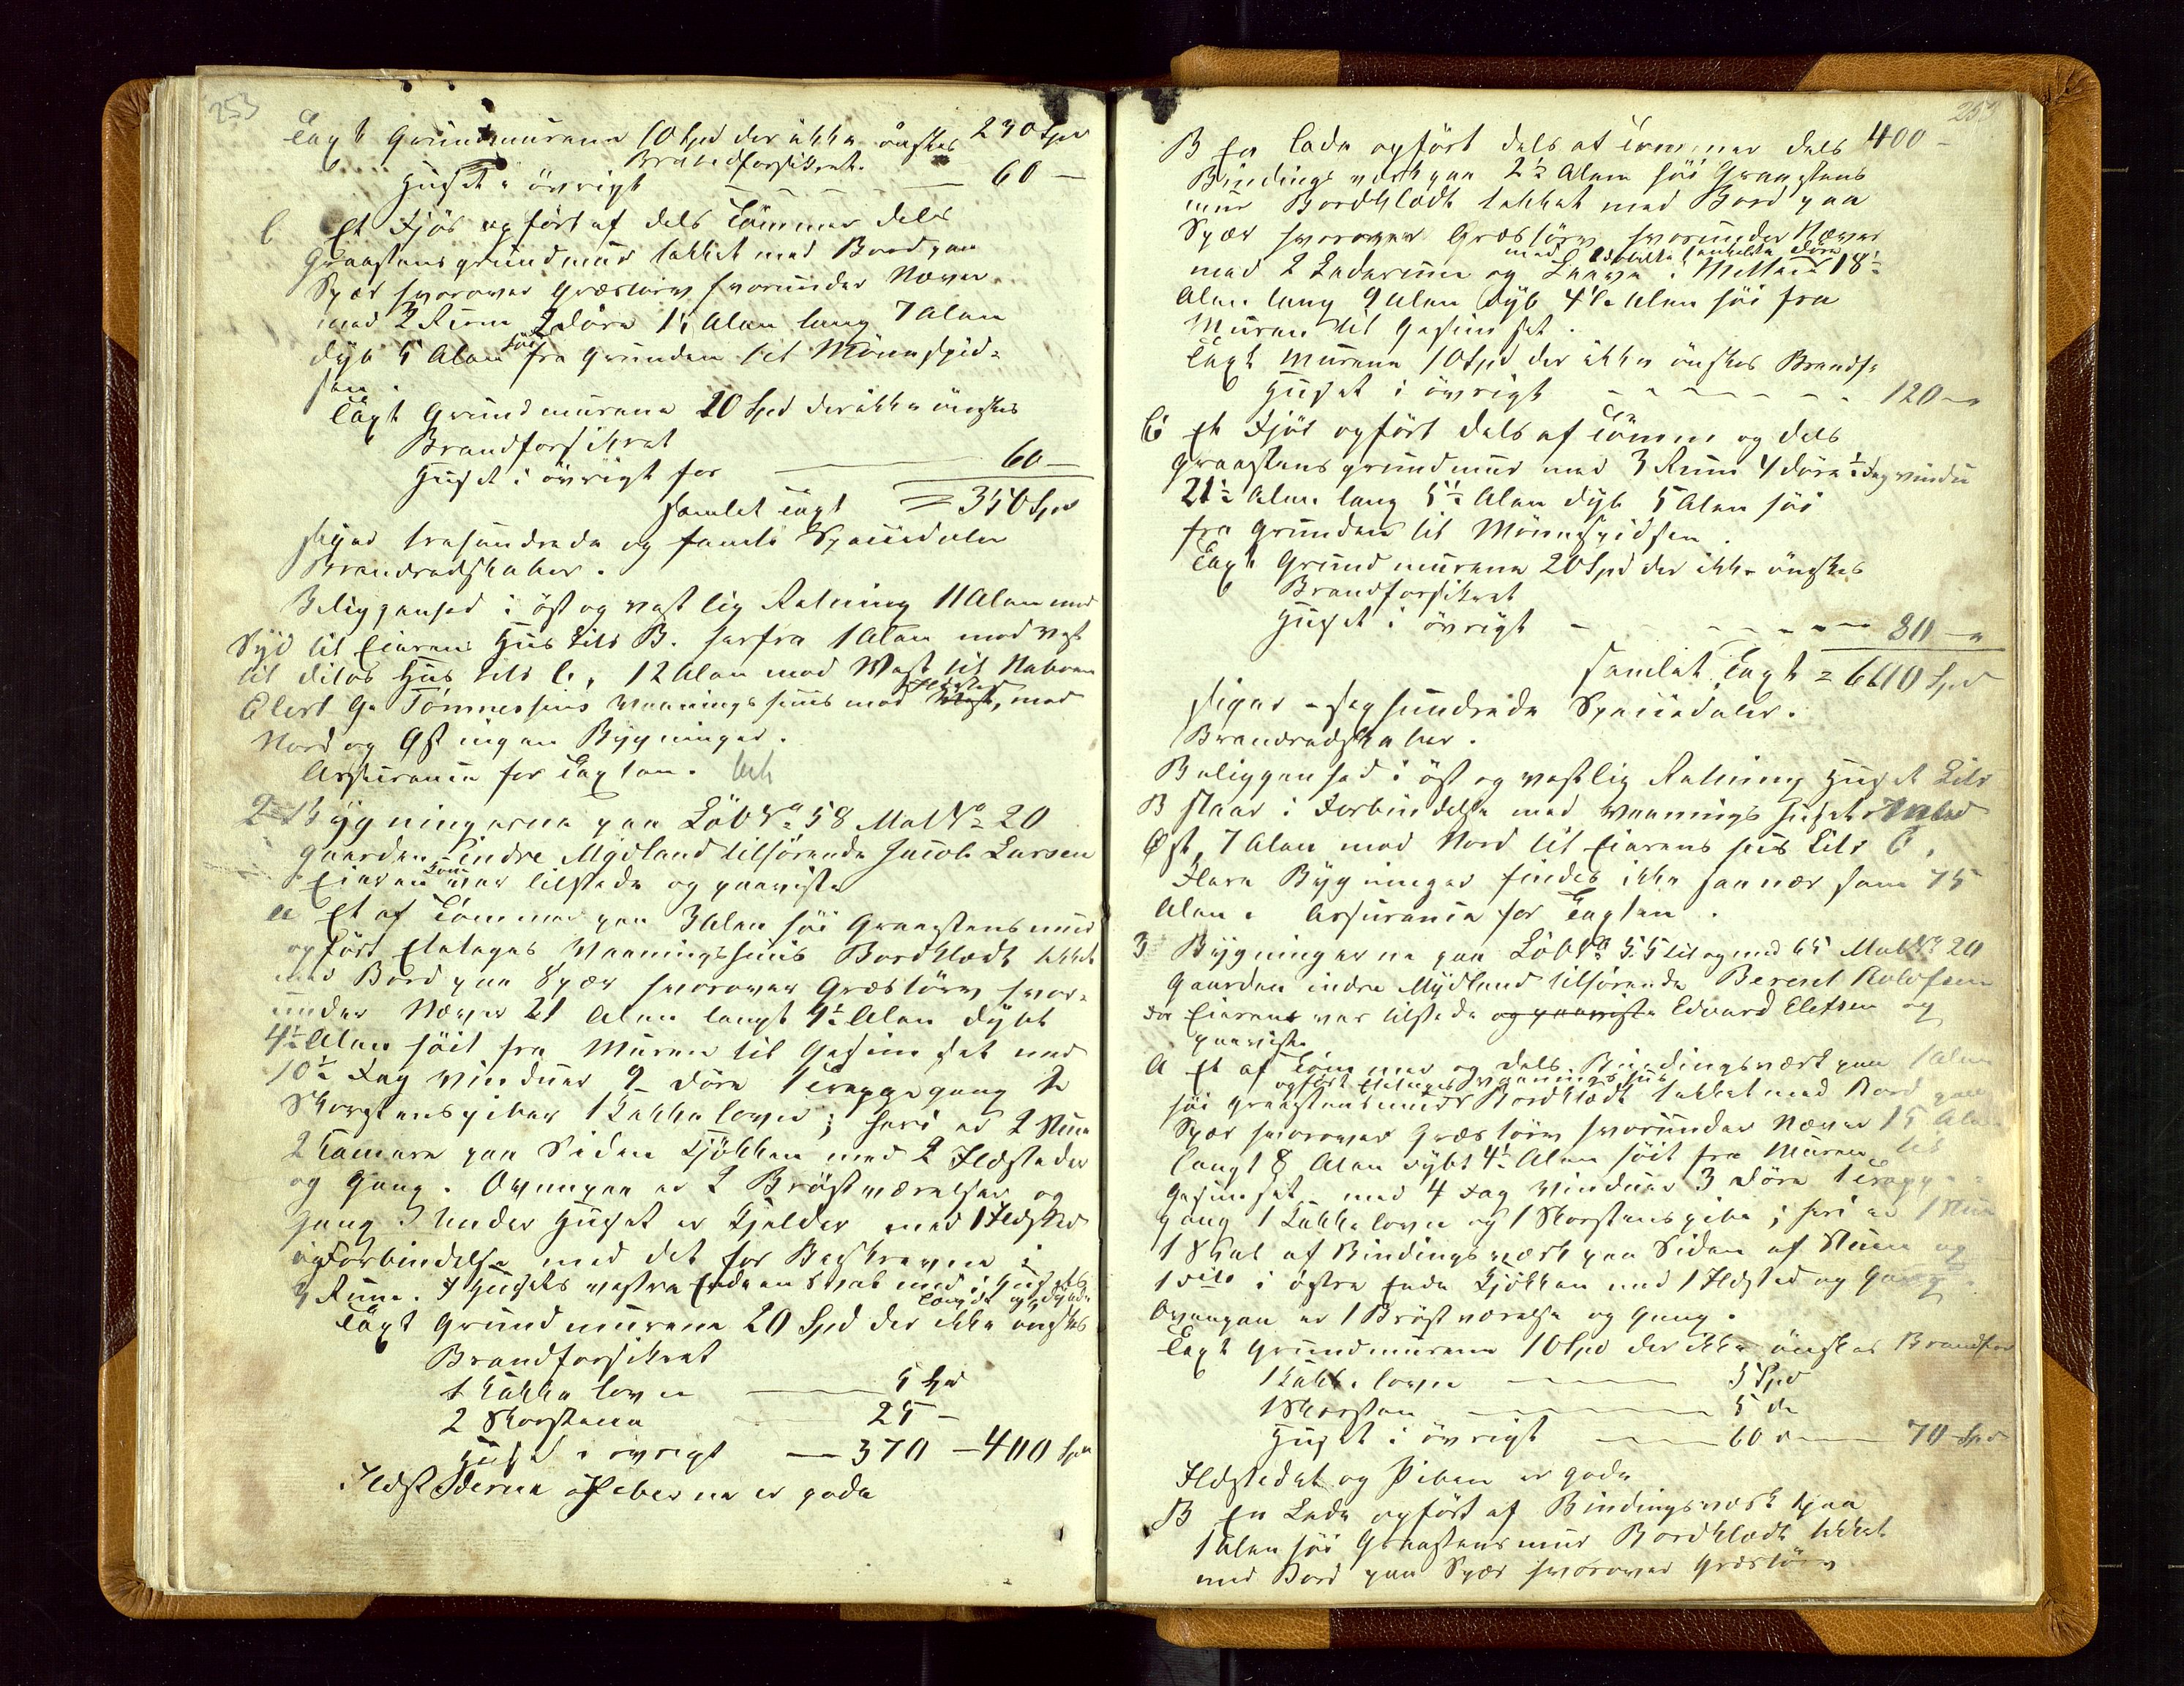 253
Taxt Grundmurene 10 Spd der ikke ønskes 230 Spd
Brandforsikret.
Huset i övrigt — 60 —
C Et Fjös opfört af dels Tömmer dels
Graastensgrundmur takket med Bord paa
Spær hvorover Græstörv hvorunder Næver
med 2 Rum 2 Döre 11 Alen lang 7 Alen
dyb 5 Alen höi fra Grunden til Mönnespid-
sen.
Taxt Grundmurene 10 Spd der ikke ønskes
Brandforsikret
Huset i övrigt for — 60 —
samlet Taxt = 350 Spd
siger trehundrede og femti Speciedaler
Brandredskaber.
Beliggenhed i öst og vestlig Retning 11 Alen mod
Syd til Eierens Hus Litr B. herfra 1 Alen mod vest
til ditos Hus Litr C, 12 Alen mod Vest til Naboen
Elert G. Tönnessens Vaaningshuus med Ildsted, mod
Nord og Øst ingen Bygninger.
Assurance for Taxten.
2 Bygningerne paa Löb No 58 Mat No 20
Gaarden indre Mydland tilhørende Jacob Larsen
Eieren som var tilstede og paaviste
A Et af Tömmer paa 3 Alen höi Graastensmur
opfört Etetages Vaaningshuus Bordklædt takket
med Bord paa Spær hvorover Græstörv hvor-
under Næver 21 Alen langt 9½ Alen dybt
4½ Alen höit fra Muren til Gesimset med
10½ Fag Vinduer 9 Döre 1 Trappegang 2
Skorstenspiber 1 Kakkelovn; heri er 2 Stuer
2 Kamere paa Siden Kjökken med 2 Ildsteder
og Gang. Ovenpaa er 2 Bröstværelser og
Gang. Under Huset er Kjelder med 1 Ildsted
i Forbindelse med det for Beskrevne i
3 Rum. I Husets vestre Ende en Sval med i Husets
Længde og dybde
Taxt Grundmurene 20 Spd der ikke ønskes
Brandforsikret
1 Kakkelovn — 5 Spd
2 Skorstene — 25 —
Huset i övrigt — 370 — 400 Spd
Ildstederne og Piberne er gode
253
B En Lade opfört dels af Tømmer dels 400 —
Bindingsverk paa 2½ Alen höi Graastens
mur Bordklædt takket med Bord paa
Spær hvorover Græstörv hvorunder Næver
med dobbelte Döre
med 2 Laderum og Laave i Mitten 18½
Alen lang 9 Alen dyb 4½ Alen höi fra
Muren til Gesimset.
Taxt Murene 10 Spd der ikke ønskes Brandf.
Huset i övrigt — 120 —
C Et Fjös opfört dels af Tömmer og dels
Graastensgrundmur med 3 Rum 4 Döre 1 Fag vindu
21½ Alen lang 5½ Alen dyb 5 Alen höi
fra Grunden til Mönnespidsen.
Taxt Grundmurene 20 Spd der ikke ønskes
Brandforsikret
Huset i övrigt — 80 —
samlet Taxt = 600 Spd
siger - sexhundrede Speciedaler.
Brandredskaber.
Beliggenhed i öst og vestlig Retning Huset Litr
B staar i Forbindelse med Vaaningshuset mod
Øst, 7 Alen mod Nord til Eierens hus Litr C.
Flere Bygninger findes ikke saa nær som 75
Alen. Assurance for Taxten.
3 Bygningerne paa Löb No 55 til og med 65 Mat No 20
Gaarden indre Mydland tilhørende Berent Rolofsen
for Eieren var tilstede og paaviste Edvard Elefsen og
paaviste
A Et af Tömmer og dels Bindingsværk paa 1 Alen
opfört Etetages Vaaningshus
höi Graastensmur Bordklædt takket med Bord paa
Spær hvorover Græstörv hvorunder Næver 15 Alen
langt 8 Alen dybt 4½ Alen höit fra Muren til
Gesimset med 4 Fag Vinduer 3 Döre 1 Trappe-
gang 1 Kakkelovn og 1 Skorstenspibe; heri er 1 Stue
1 Sval af Bindingsværk paa Siden af Stuen og
1 dito i östre Ende Kjökken med 1 Ildsted og Gang.
Ovenpaa er 1 Bröstværelse og Gang.
Taxt Grundmurene 10 Spd der ikke ønskes Brandfor
1 Kakkelovn — 5 Spd
1 Skorsten — 5 do
Huset i övrigt — 60 do — 70 Spd
Ildstedet og Piben er gode
B En Lade opfört af Bindingsværk paa
1 Alen höi Graastensmur Bordklædt takket
med Bord paa Spær hvorover Græstörv